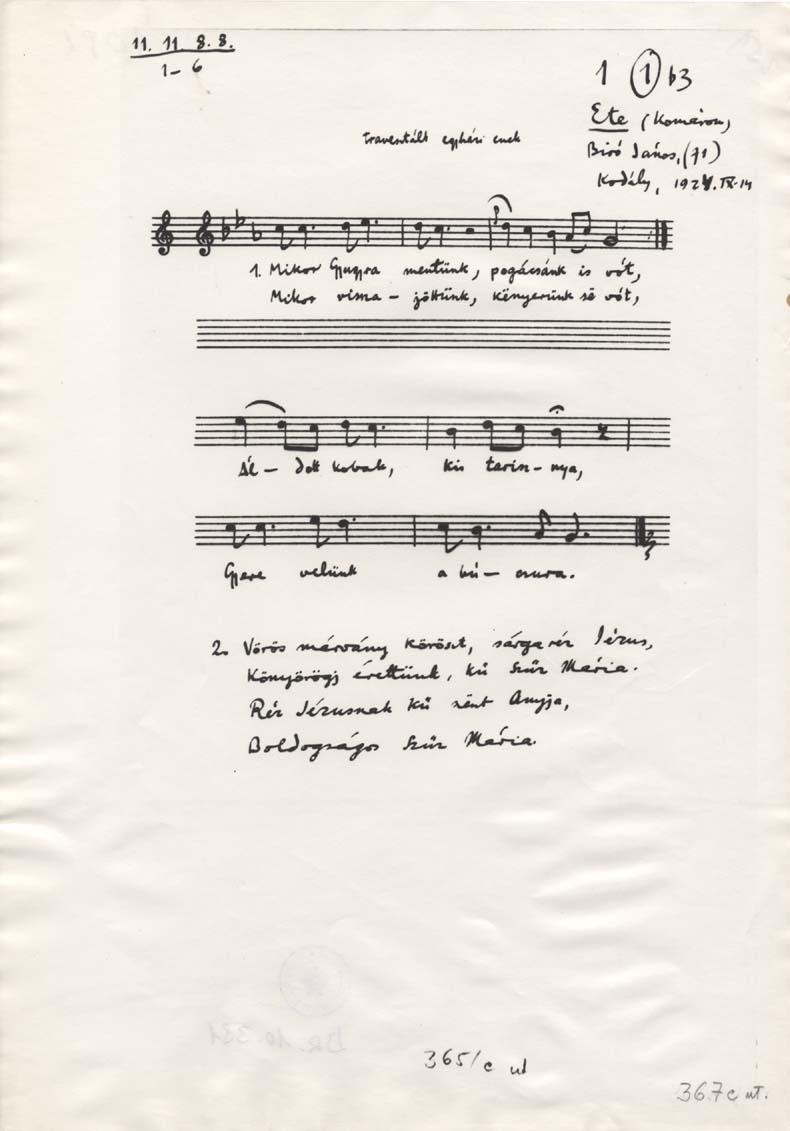 11. 11 8. 8.
1-6
1 1 b3
Ete (Komárom)
travesztált egyházi ének
Biró János, (71)
Kodály, 192 .IX.14
1. Mikor Gyugyra mentünk, pogácsánk is vót,
Mikor vissza-jöttünk, kényerünk sē vót,
Ál-dott kobak, kis tarisz-nya,
Gyere velünk a bú-csura.
2. Vörös márvány köröszt, sárgaréz Jézus,
Könyörögj érettünk, kű Szűz Mária.
Réz Jézusnak kű szént Anyja,
Boldogságos Szűz Mária.
BR. 10 331
365/c ut
367c ut.